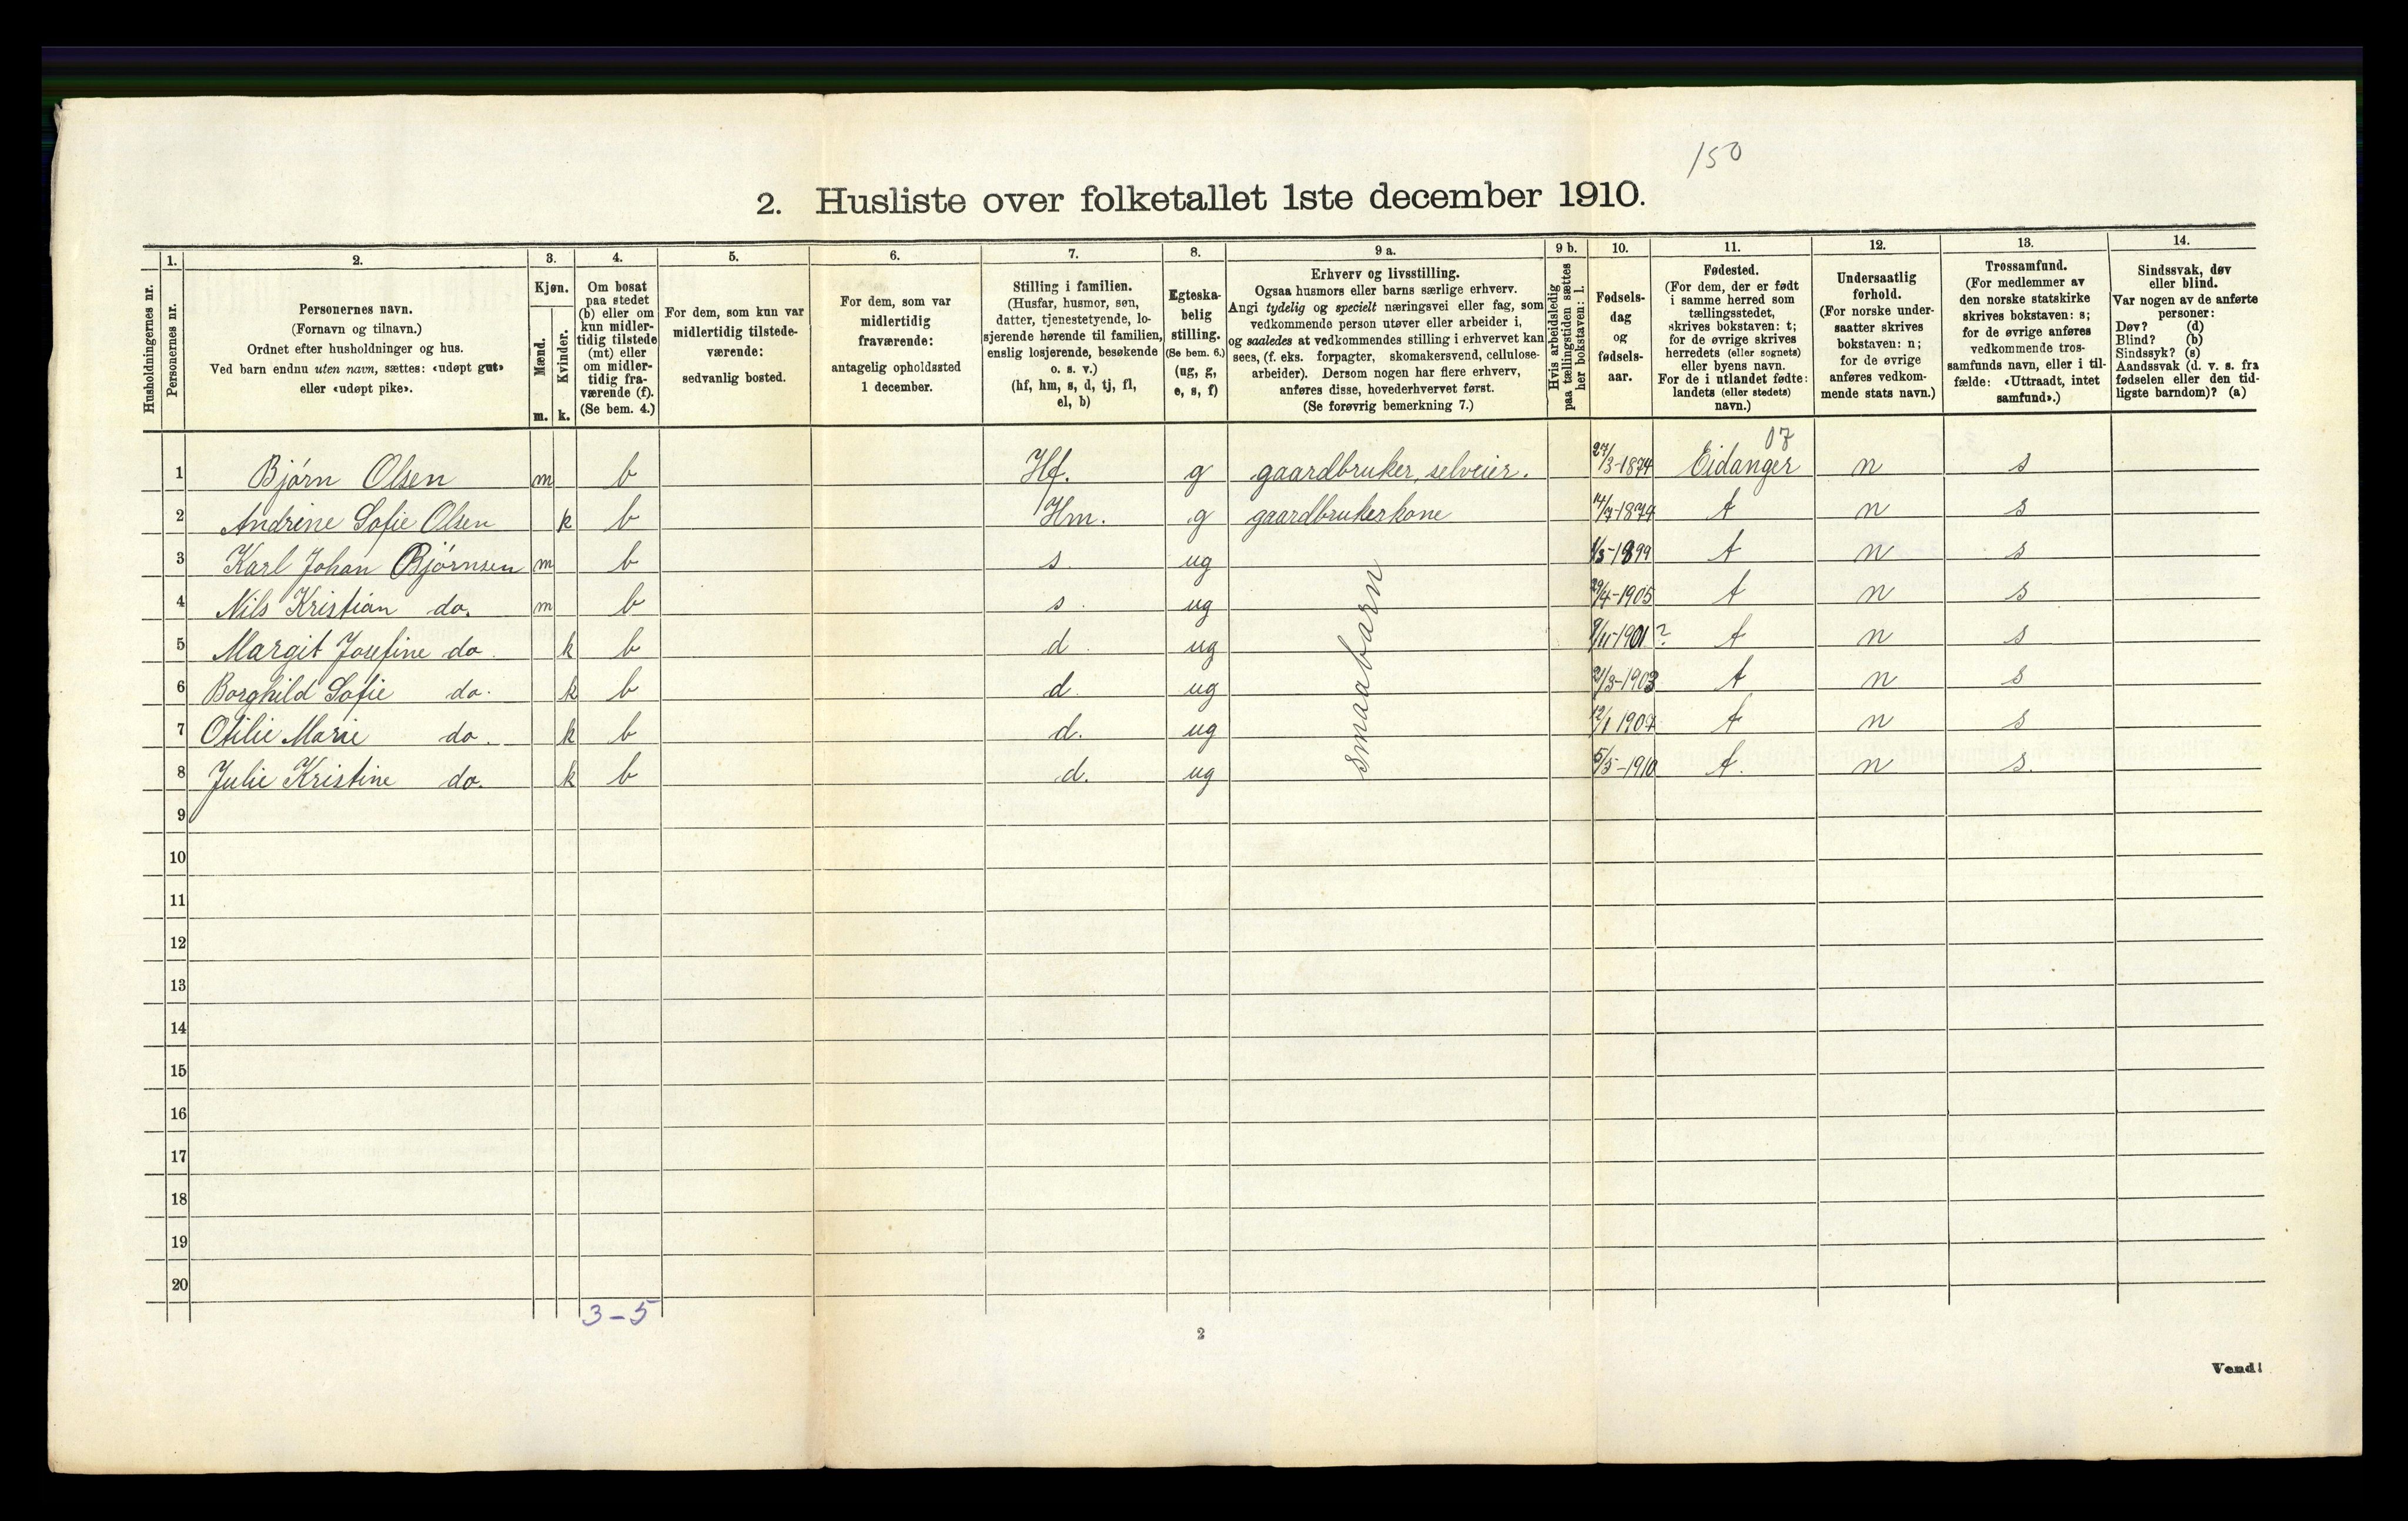 150
2. Husliste over folketallet 1ste december 1910.
Husholdningernes nr.
1.
Personernes nr.
2.
Personernes navn.
(Fornavn og tilnavn.)
Ordnet efter husholdninger og hus.
Ved barn endnu uten navn, sættes: «udøpt gut»
eller «udøpt pike».
3.
Kjøn.
Mænd.
Kvinder.
m. k.
4.
Om bosat
paa stedet
(b) eller om
kun midler-
tidig tilstede
(mt) eller
om midler-
tidig fra-
værende (f).
(Se bem. 4.)
5.
For dem, som kun var
midlertidig tilstede-
værende:
sedvanlig bosted.
6.
For dem, som var
midlertidig
fraværende:
antagelig opholdssted
1 december.
7.
Stilling i familien.
(Husfar, husmor, søn,
datter, tjenestetyende, lo-
sjerende hørende til familien,
enslig losjerende, besøkende
o. s. v.)
(hf, hm, s, d, tj, fl,
el, b)
8.
Egteska-
belig
stilling.
(Se bem. 6.)
(ug, g,
e, s, f)
9 a.
Erhverv og livsstilling.
Ogsaa husmors eller barns særlige erhverv.
Angi tydelig og specielt næringsvei eller fag, som
vedkommende person utøver eller arbeider i,
og saaledes at vedkommendes stilling i erhvervet kan
sees, (f. eks. forpagter, skomakersvend, cellulose-
arbeider). Dersom nogen har flere erhverv,
anføres disse, hovederhvervet først.
(Se forøvrig bemerkning 7.)
9 b.
Hvis arbeidsledig
paa tællingstiden sættes
her bokstaven: l.
10.
Fødsels-
dag
og
fødsels-
aar.
11.
Fødested.
(For dem, der er født
i samme herred som
tællingsstedet,
skrives bokstaven: t;
for de øvrige skrives
herredets (eller sognets)
eller byens navn.
For de i utlandet fødte:
landets (eller stedets)
navn.)
12.
Undersaatlig
forhold.
(For norske under-
saatter skrives
bokstaven: n;
for de øvrige
anføres vedkom-
mende stats navn.)
13.
Trossamfund.
(For medlemmer av
den norske statskirke
skrives bokstaven: s;
for de øvrige anføres
vedkommende tros-
samfunds navn, eller i til-
fælde: «Uttraadt, intet
samfund».)
14.
Sindssvak, døv
eller blind.
Var nogen av de anførte
personer:
Døv? (d)
Blind? (b)
Sindssyk? (s)
Aandssvak (d. v. s. fra
fødselen eller den tid-
ligste barndom)? (a)
07
1 Bjørn Olsen m b Hf. g gaardbruker, selveier. 27/3-1874 Eidanger n s
2 Andrine Sofie Olsen k b Hm. g gaardbrukerkone 14/7-1879 t n s
3 Karl Johan Bjørnsen m b s. ug 1/3-1899 t n s
4 Nils Kristian do. m b s. ug 29/4-1905 t n s
5 Margit Josefine do. k b d. ug 9/11-1901 ? t n s
6 Borghild Sofie do. k b d. ug 21/3-1903 t n s
7 Otilie Marie do. k b d. ug 12/1 1907 t n s
8 Julie Kristine do. k b d. ug 5/5-1910 t. n s.
smaabarn
9
10
11
12
13
14
15
16
17
18
19
20
3-5
2
Vend!